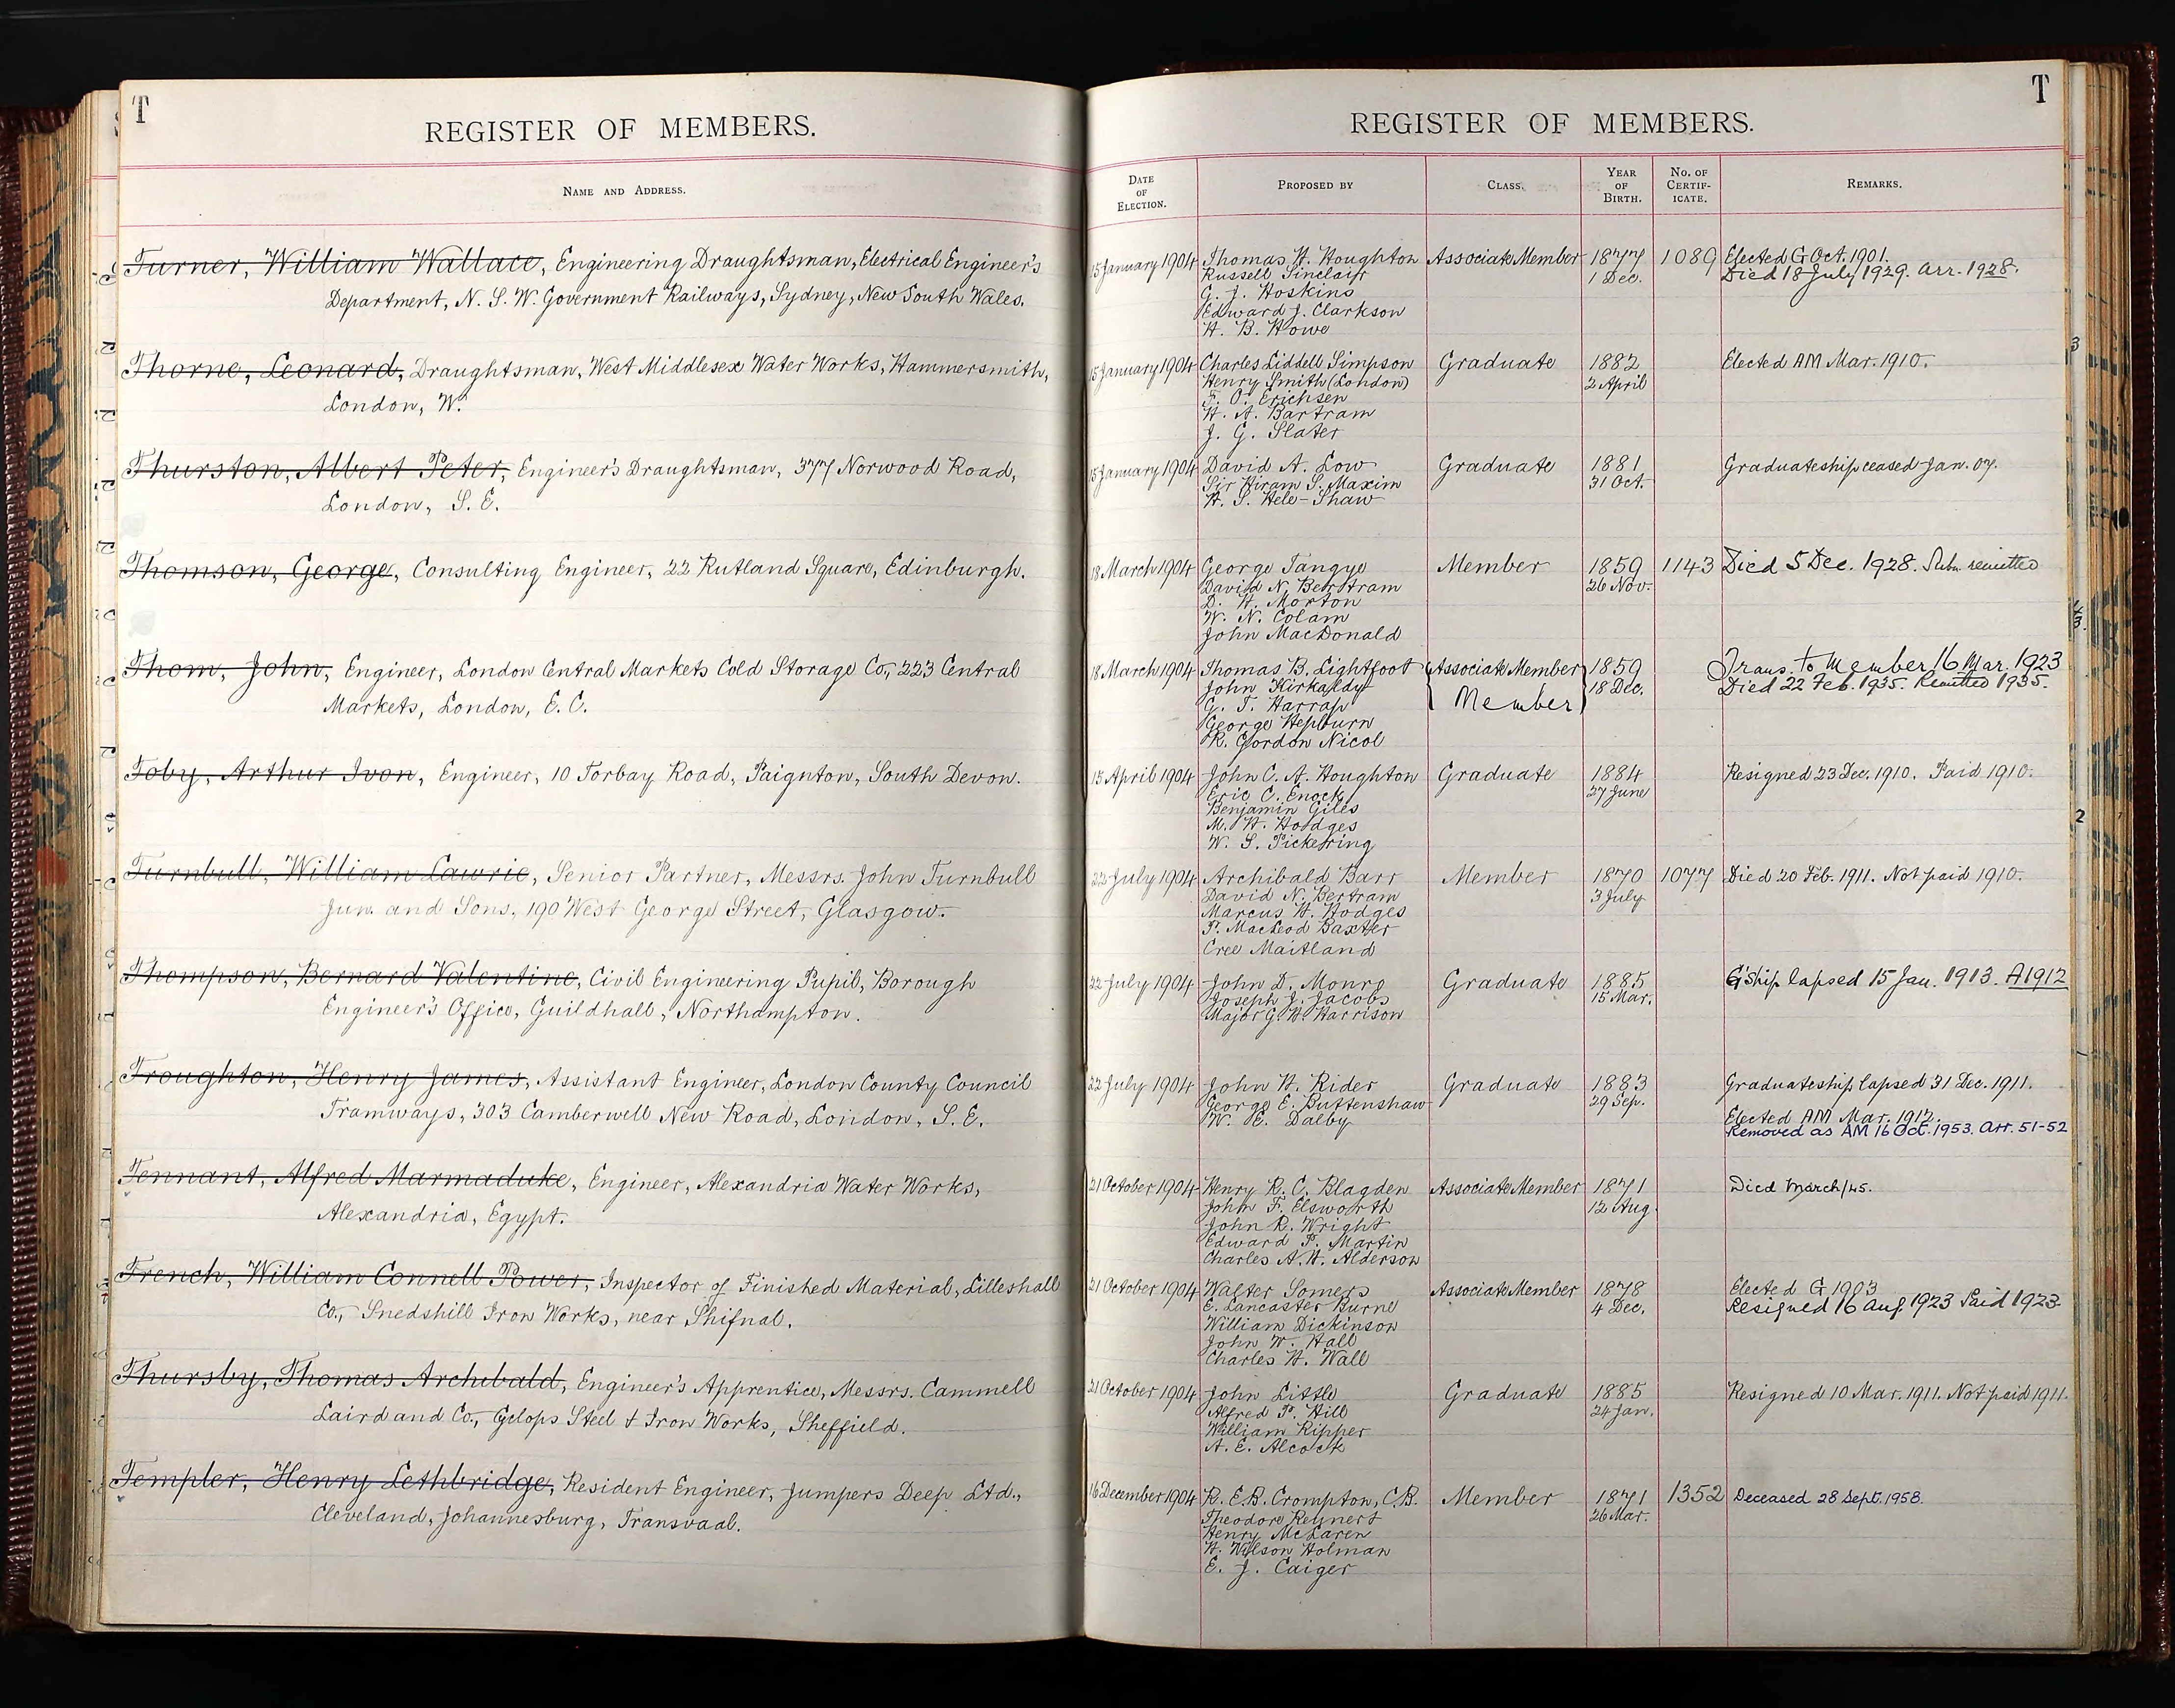 T
REGISTER OF MEMBERS.
NAME AND ADDRESS.
Turner, William Wallace, Engineering Draughtsman, Electrical Engineer's
Department, N. S. W. Government Railways, Sydney, New South Wales.
Thorne, Leonard, Draughtsman, West Middlesex Water Works, Hammersmith,
London, W.
Thurston, Albert Peter, Engineer's Draughtsman, 377 Norwood Road,
London, S. E.
Thomson, George, Consulting Engineer, 22 Rutland Square, Edinburgh.
Thom, John, Engineer, London Central Markets Cold Storage Co., 223 Central
Markets, London, E. C.
Toby, Arthur Ivon, Engineer, 10 Torbay Road, Paignton, South Devon.
Turnbull, William Lawrie, Senior Partner, Messrs. John Turnbull
Jun. and Sons, 190 West George Street, Glasgow.
Thompson, Bernard Valentine, Civil Engineering Pupil, Borough
Engineer's Office, Guildhall, Northampton.
Troughton, Henry James, Assistant Engineer, London County Council
Tramways, 303 Camberwell New Road, London, S. E.
Tennant, Alfred Marmaduke, Engineer, Alexandria Water Works,
Alexandria, Egypt.
French, William Connell Power, Inspector of Finished Material, Lilleshall
Co., Snedshill Iron Works, near Shifnal.
Thursby, Thomas Archibald, Engineer's Apprentice, Messrs. Cammell
Laird and Co., Cyclops Steel & Iron Works, Sheffield.
Templer, Henry Lethbridge, Resident Engineer, Jumpers Deep Ltd.,
Cleveland, Johannesburg, Transvaal.
T
REGISTER OF MEMBERS.
DATE OF ELECTION. PROPOSED BY CLASS. YEAR OF BIRTH. No. OF CERTIF-ICATE. REMARKS.
15 January 1904 Thomas H. Houghton Associate Member 1877 1089 Elected G Oct. 1901.
Russell Sinclair 1 Dec. Died 18 July 1929. Arr. 1928.
G. J. Hoskins
Edward J. Clarkson
H. B. Howe
15 January 1904 Charles Liddell Simpson Graduate 1882 Elected AM Mar. 1910.
Henry Smith (London) 2 April
F. O. Erichsen
H. A. Bartram
J. G. Slater
15 January 1904 David A. Low Graduate 1881 Graduateship ceased Jan. 07.
Sir Hiram S. Maxim 31 Oct.
H. S. Hele-Shaw
18 March 1904 George Tangye Member 1859 1143 Died 5 Dec. 1928. Subn. remitted
David N. Bertram 26 Nov.
D. H. Morton
W. N. Colam
John MacDonald
18 March 1904 Thomas B. Lightfoot Associate Member 1859 Trans. to Member 16 Mar. 1923
John Kirkaldy Member 18 Dec. Died 22 Feb. 1935. Remitted 1935.
G. T. Harrap
George Hepburn
R. Gordon Nicol
15 April 1904 John C. A. Houghton Graduate 1884 Resigned 23 Dec. 1910. Paid 1910.
Eric C. Enock 27 June
Benjamin Giles
M. H. Hodges
W. S. Pickering
22 July 1904 Archibald Barr Member 1870 1077 Died 20 Feb. 1911. Not paid 1910.
David N. Bertram 3 July
Marcus H. Hodges
P. MacLeod Baxter
Cree Maitland
22 July 1904 John D. Monro Graduate 1885 G'ship lapsed 15 Jan. 1913. A1912
Joseph J. Jacobs 15 Mar.
Major G. H. Harrison
22 July 1904 John H. Rider Graduate 1883 Graduateship lapsed 31 Dec. 1911.
George E. Buttenshaw 29 Sep.
W. E. Dalby Elected AM Mar. 1912.
Removed as AM 16 Oct. 1953. Arr. 51-52
21 October 1904 Henry R. C. Blagden Associate Member 1871 Died March/45.
John F. Elsworth 12 Aug.
John R. Wright
Edward P. Martin
Charles A. H. Alderson
21 October 1904 Walter Somers Associate Member 1878 Elected G 1903
E. Lancaster Burne 4 Dec. Resigned 16 Aug 1923 Paid 1923
William Dickinson
John W. Hall
Charles H. Wall
21 October 1904 John Little Graduate 1885 Resigned 10 Mar. 1911. Not paid 1911.
Alfred P. Hill 24 Jan.
William Ripper
A. E. Alcock
16 December 1904 R. E. B. Crompton, C.B. Member 1871 1352 Deceased 28 Sept. 1958.
Theodore Reunert 26 Mar.
Henry McLaren
H. Wilson Holman
E. J. Caiger